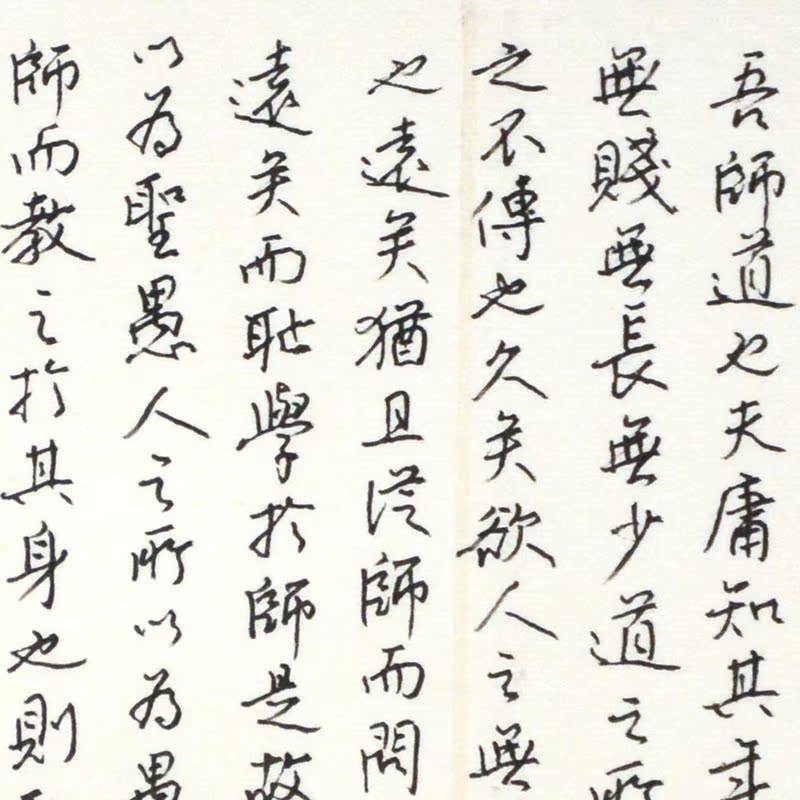 吾師道也夫庸知其年
無賤無長無少道之所
之不傳也久矣欲人之無
也遠矣猶且從師而問
遠矣而恥學於師是故
以為聖愚人之所以為愚
師而教之於其身也則